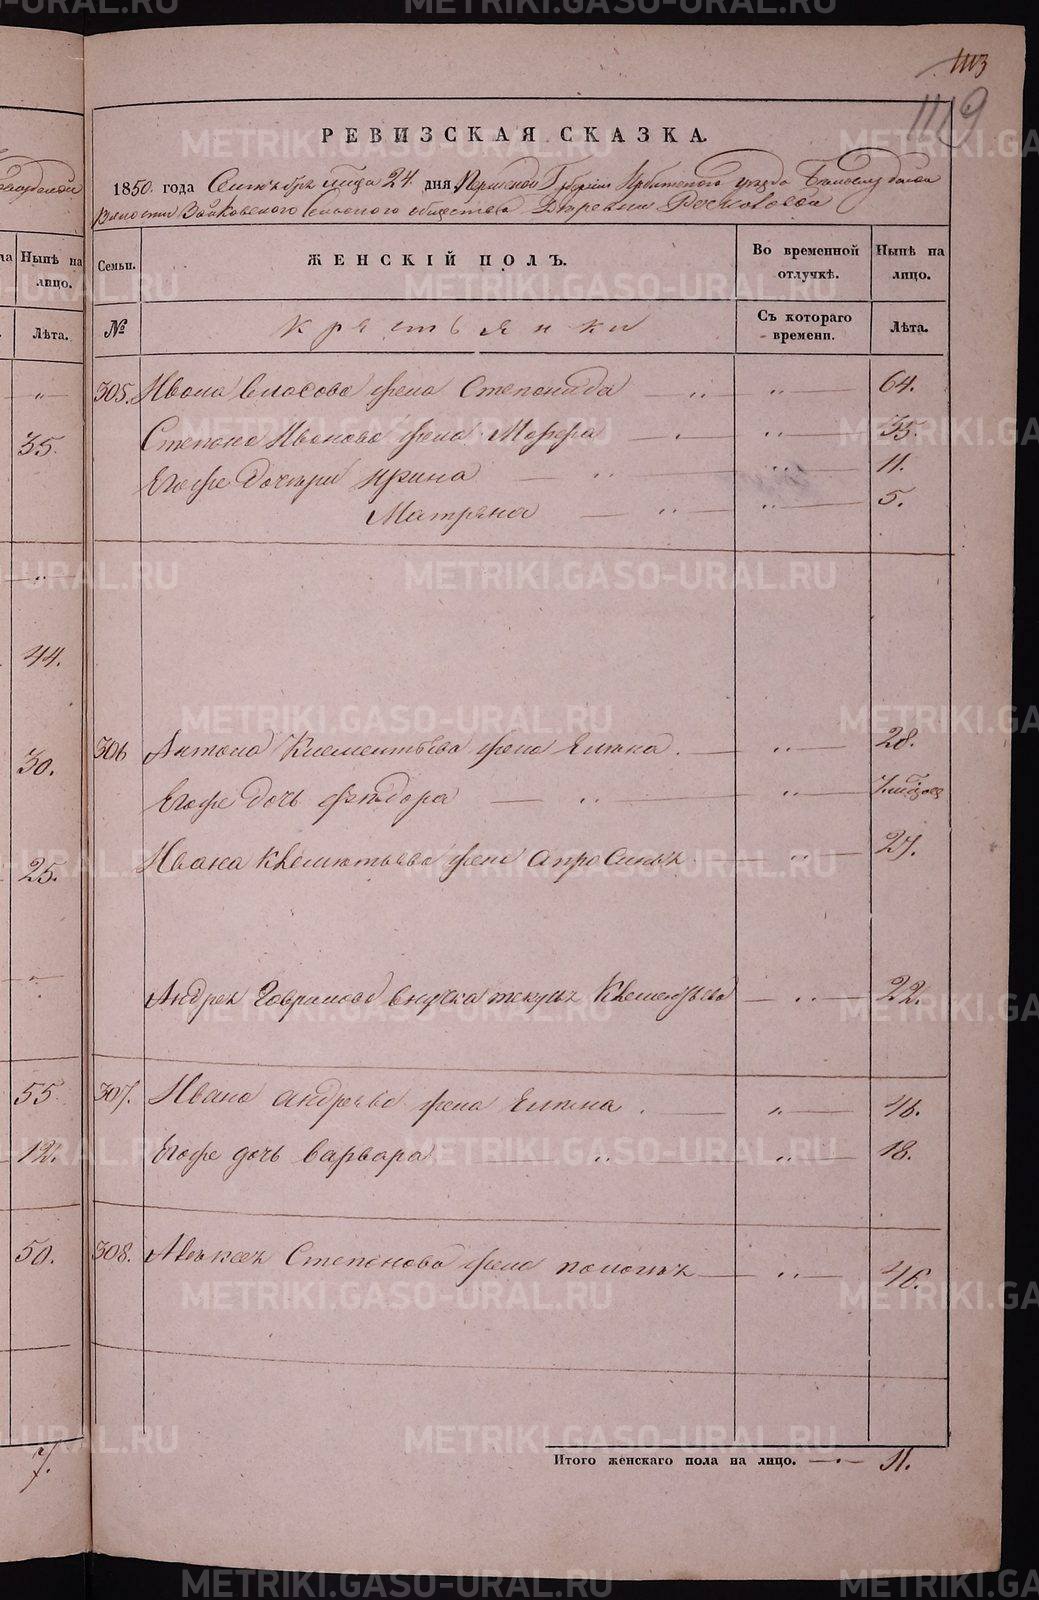 1113
1119
РЕВИЗСКАЯ СКАЗКА.
1850. года Сентября м-ца 24. дня Пермской Губернии Ирбитского уезда
Волости Зайковского сельского общества Деревни
Семьи. ЖЕНСКІЙ ПОЛЪ. Во временной отлучкѣ. Нынѣ на лицо.
№ Крестьянки Съ котораго времени. Лѣта.
305. Ивана Власова жена Степанида — „ — „ — 64.
Степана Иванова жена Марфа — „ — 35.
Егоже дочери Ирина — „ — „ — 11.
Матряна — „ — „ — 5.
306 Антона Клементьева жена Елена. — „ — 28.
Егоже дочь Федора — „ — „ —
Ивана Клементьева жена Апросинья — „ — 27.
Андрея Гаврилова внучка Клементьева — „ — 22.
307. Ивана Андреева жена Елена. — „ — 46.
Егоже дочь Варвара — „ — „ — 18.
308. Алексея Степанова жена — „ — 46.
Итого женскаго пола на лицо. — 11.
Нынѣ на лицо.
Лѣта.
„
35.
„
44.
30.
25.
„
55.
12.
50.
7.
METRIKI.GASO-URAL.RU